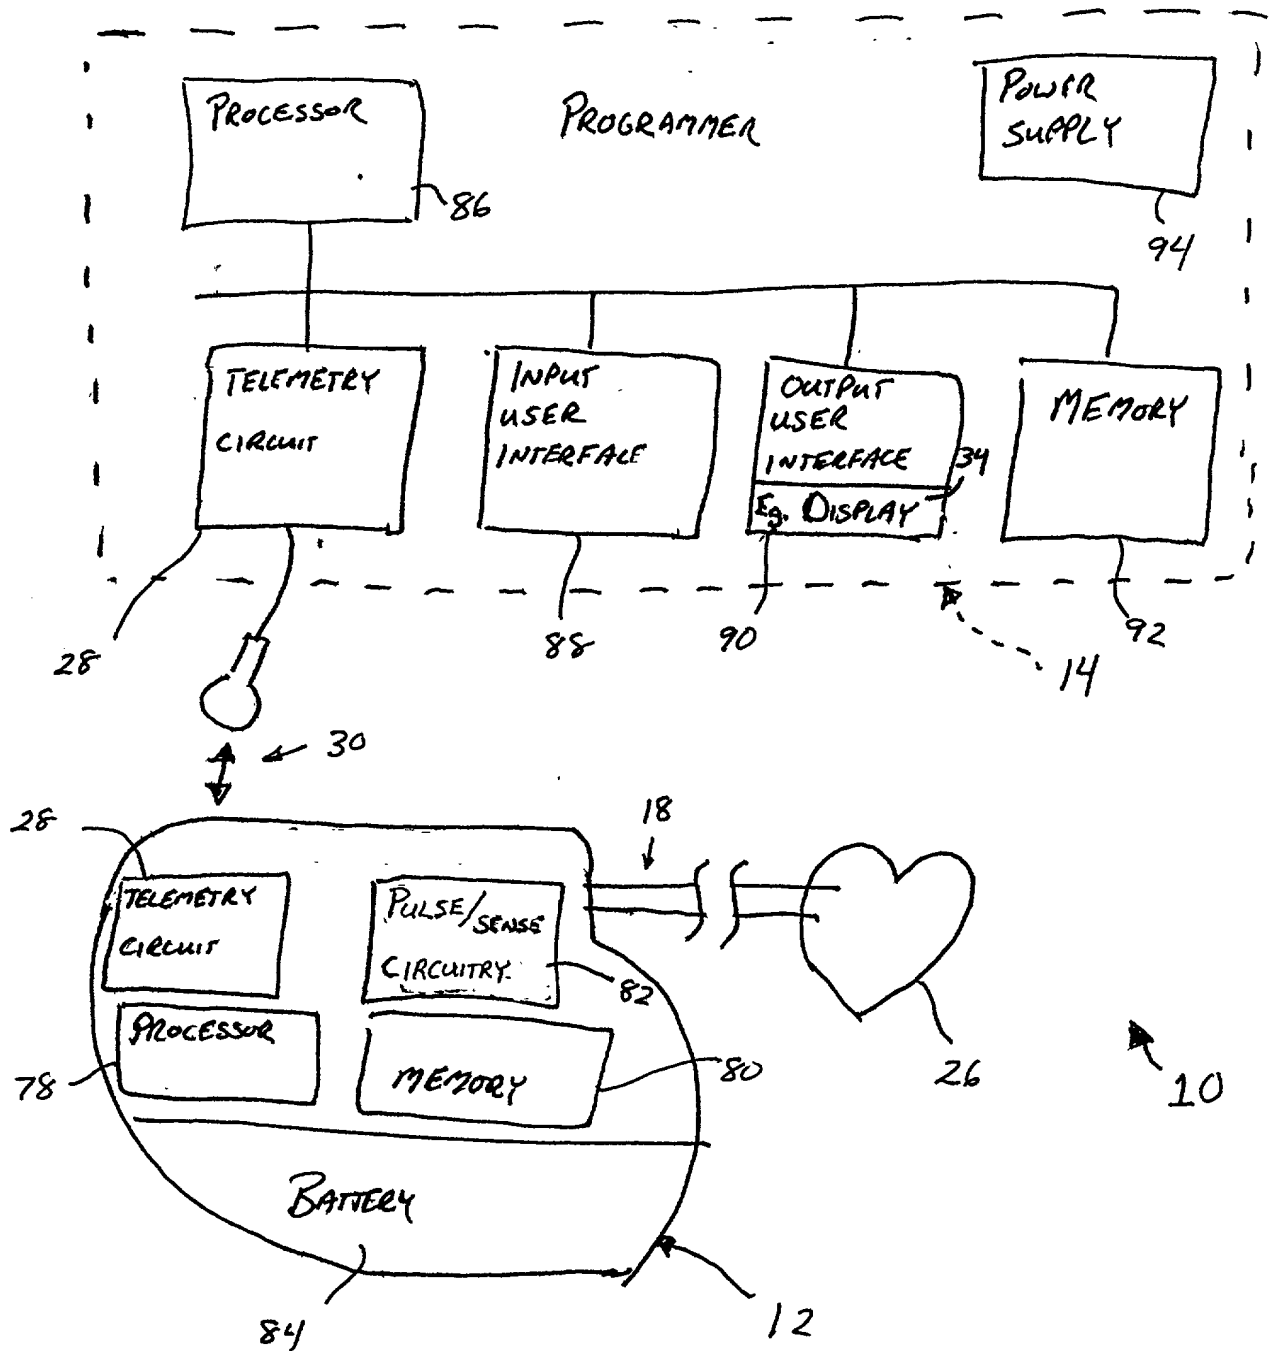 PROCESSOR
86
PROGRAMMER
POWER
SUPPLY
94
TELEMETRY
CIRCUIT
28
INPUT
USER
INTERFACE
88
OUTPUT
USER
INTERFACE
34
Eg. DISPLAY
90
MEMORY
92
14
30
28
TELEMETRY
CIRCUIT
PULSE/SENSE
CIRCUITRY
82
18
26
PROCESSOR
78
MEMORY
80
10
BATTERY
84
12